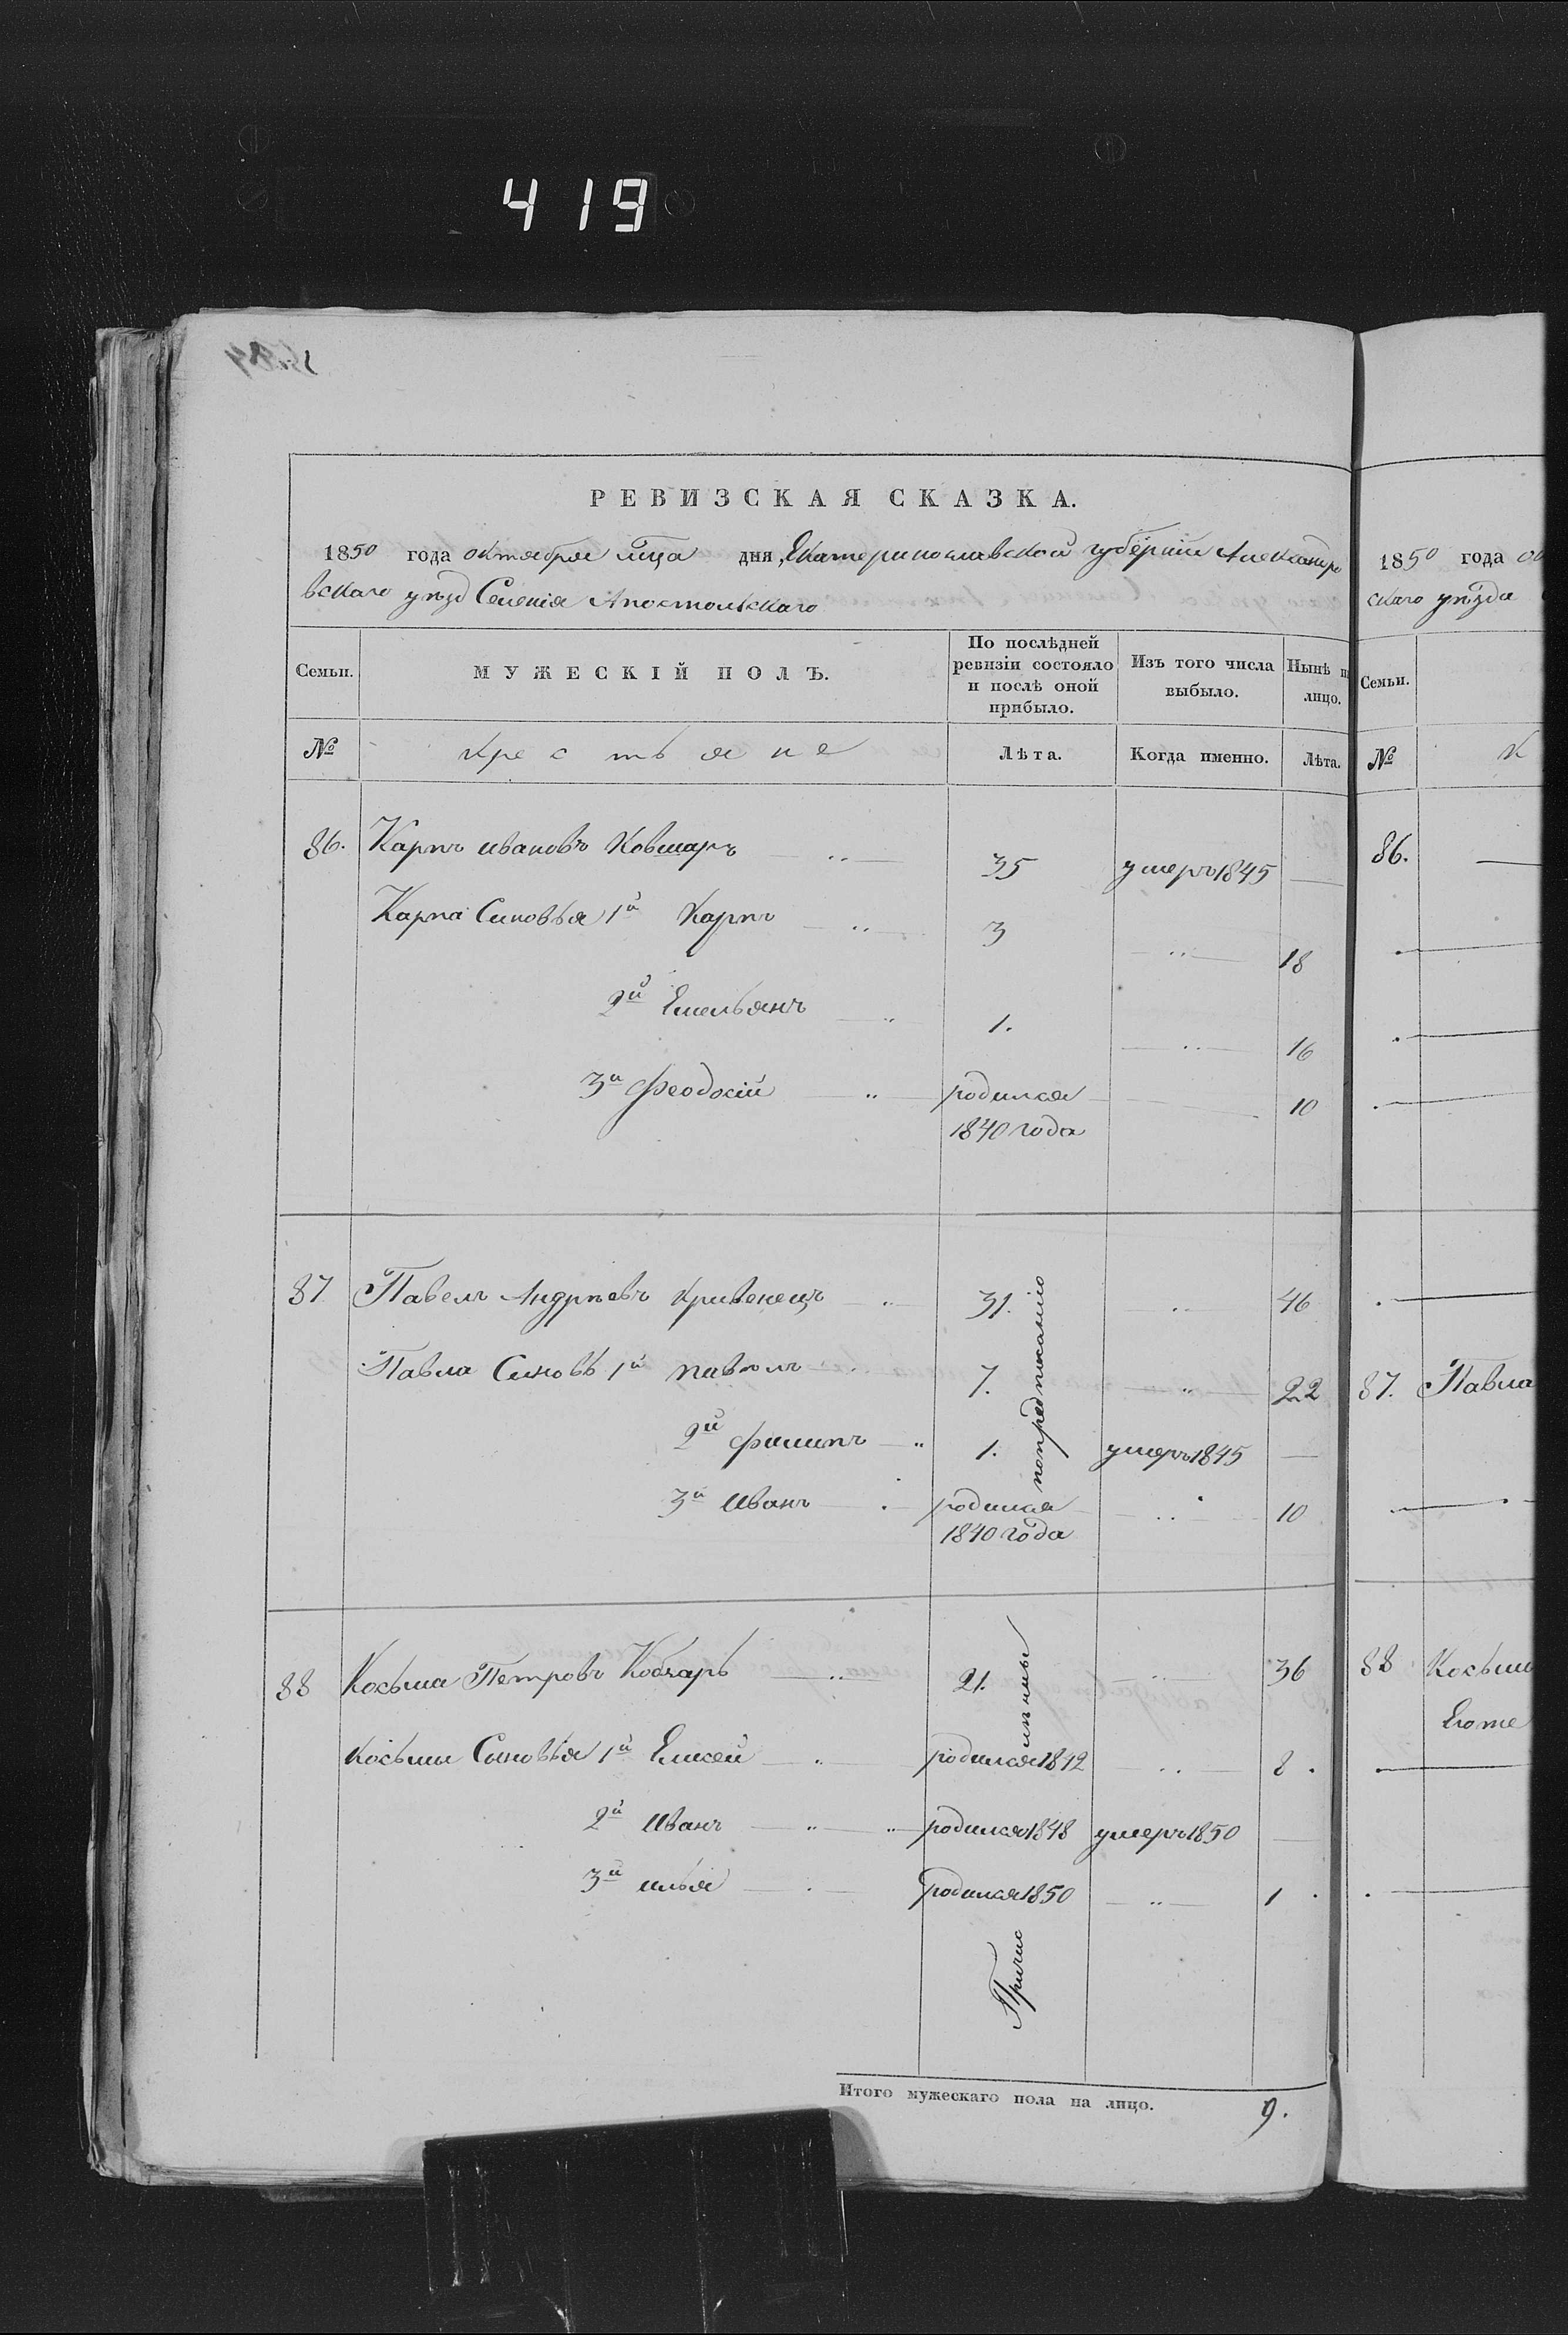 419
РЕВИЗСКАЯ СКАЗКА.
1850 года октября мца дня, Екатеринославской губернии Александро
вскаго уезд Селенія Апостольскаго
Семьи.
МУЖЕСКІЙ ПОЛЪ.
По послѣдней ревизіи состояло и послѣ оной прибыло.
Изъ того числа выбыло.
Нынѣ н лицо.
№
крестьяне
Лѣта.
Когда именно.
Лѣта.
86. Карпъ ивановъ Ковшаръ 35 умеръ 1845
Карпа Синовья 1й Карпъ 3 18
2й Емельянъ 1. 16
3й Феодосій родился 10
1840 года
87 Павелъ Андреевъ Кривенецъ 31. 46
Павла Синовь 1й павелъ 7. 22
2й Филипъ 1. умеръ 1845
3й иванъ родился 10
1840 года
88 Косьма Петровъ Кобзарь 21. 36
Косьми Синовья 1й Елисей родился 1842 8.
2й иванъ родился 1848 умеръ 1850
3й илья родился 1850 1
Причис
лѣнны
попредписанію
Итого мужескаго пола на лицо. 9.
1850 года ок
скаго уѣзда
Семьи.
№
К
86.
87. Павла
88 Косьми
Егоже